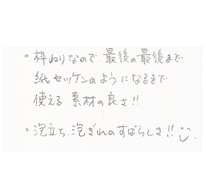 "枠ねりなので 最後の最後まで
紙セッケンのようになるまで
使える 素材の良さ!!
"泡立ち、泡ぎれのすばらしさ!!